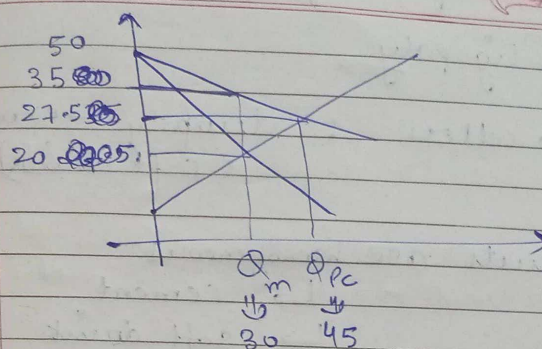 50
35
27.5
20
Qm Qpc
⇓ ⇓
30 45